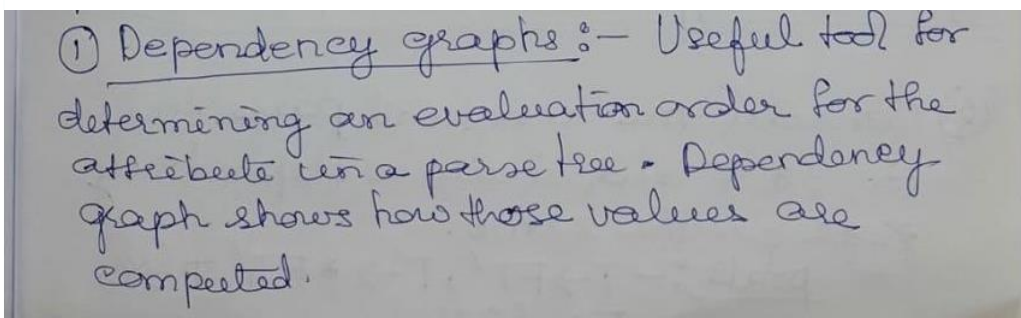 ① Dependency graphs :- Useful tool for
determining an evaluation order for the
attribute in a parse tree. Dependency
graph shows how those values are
computed.